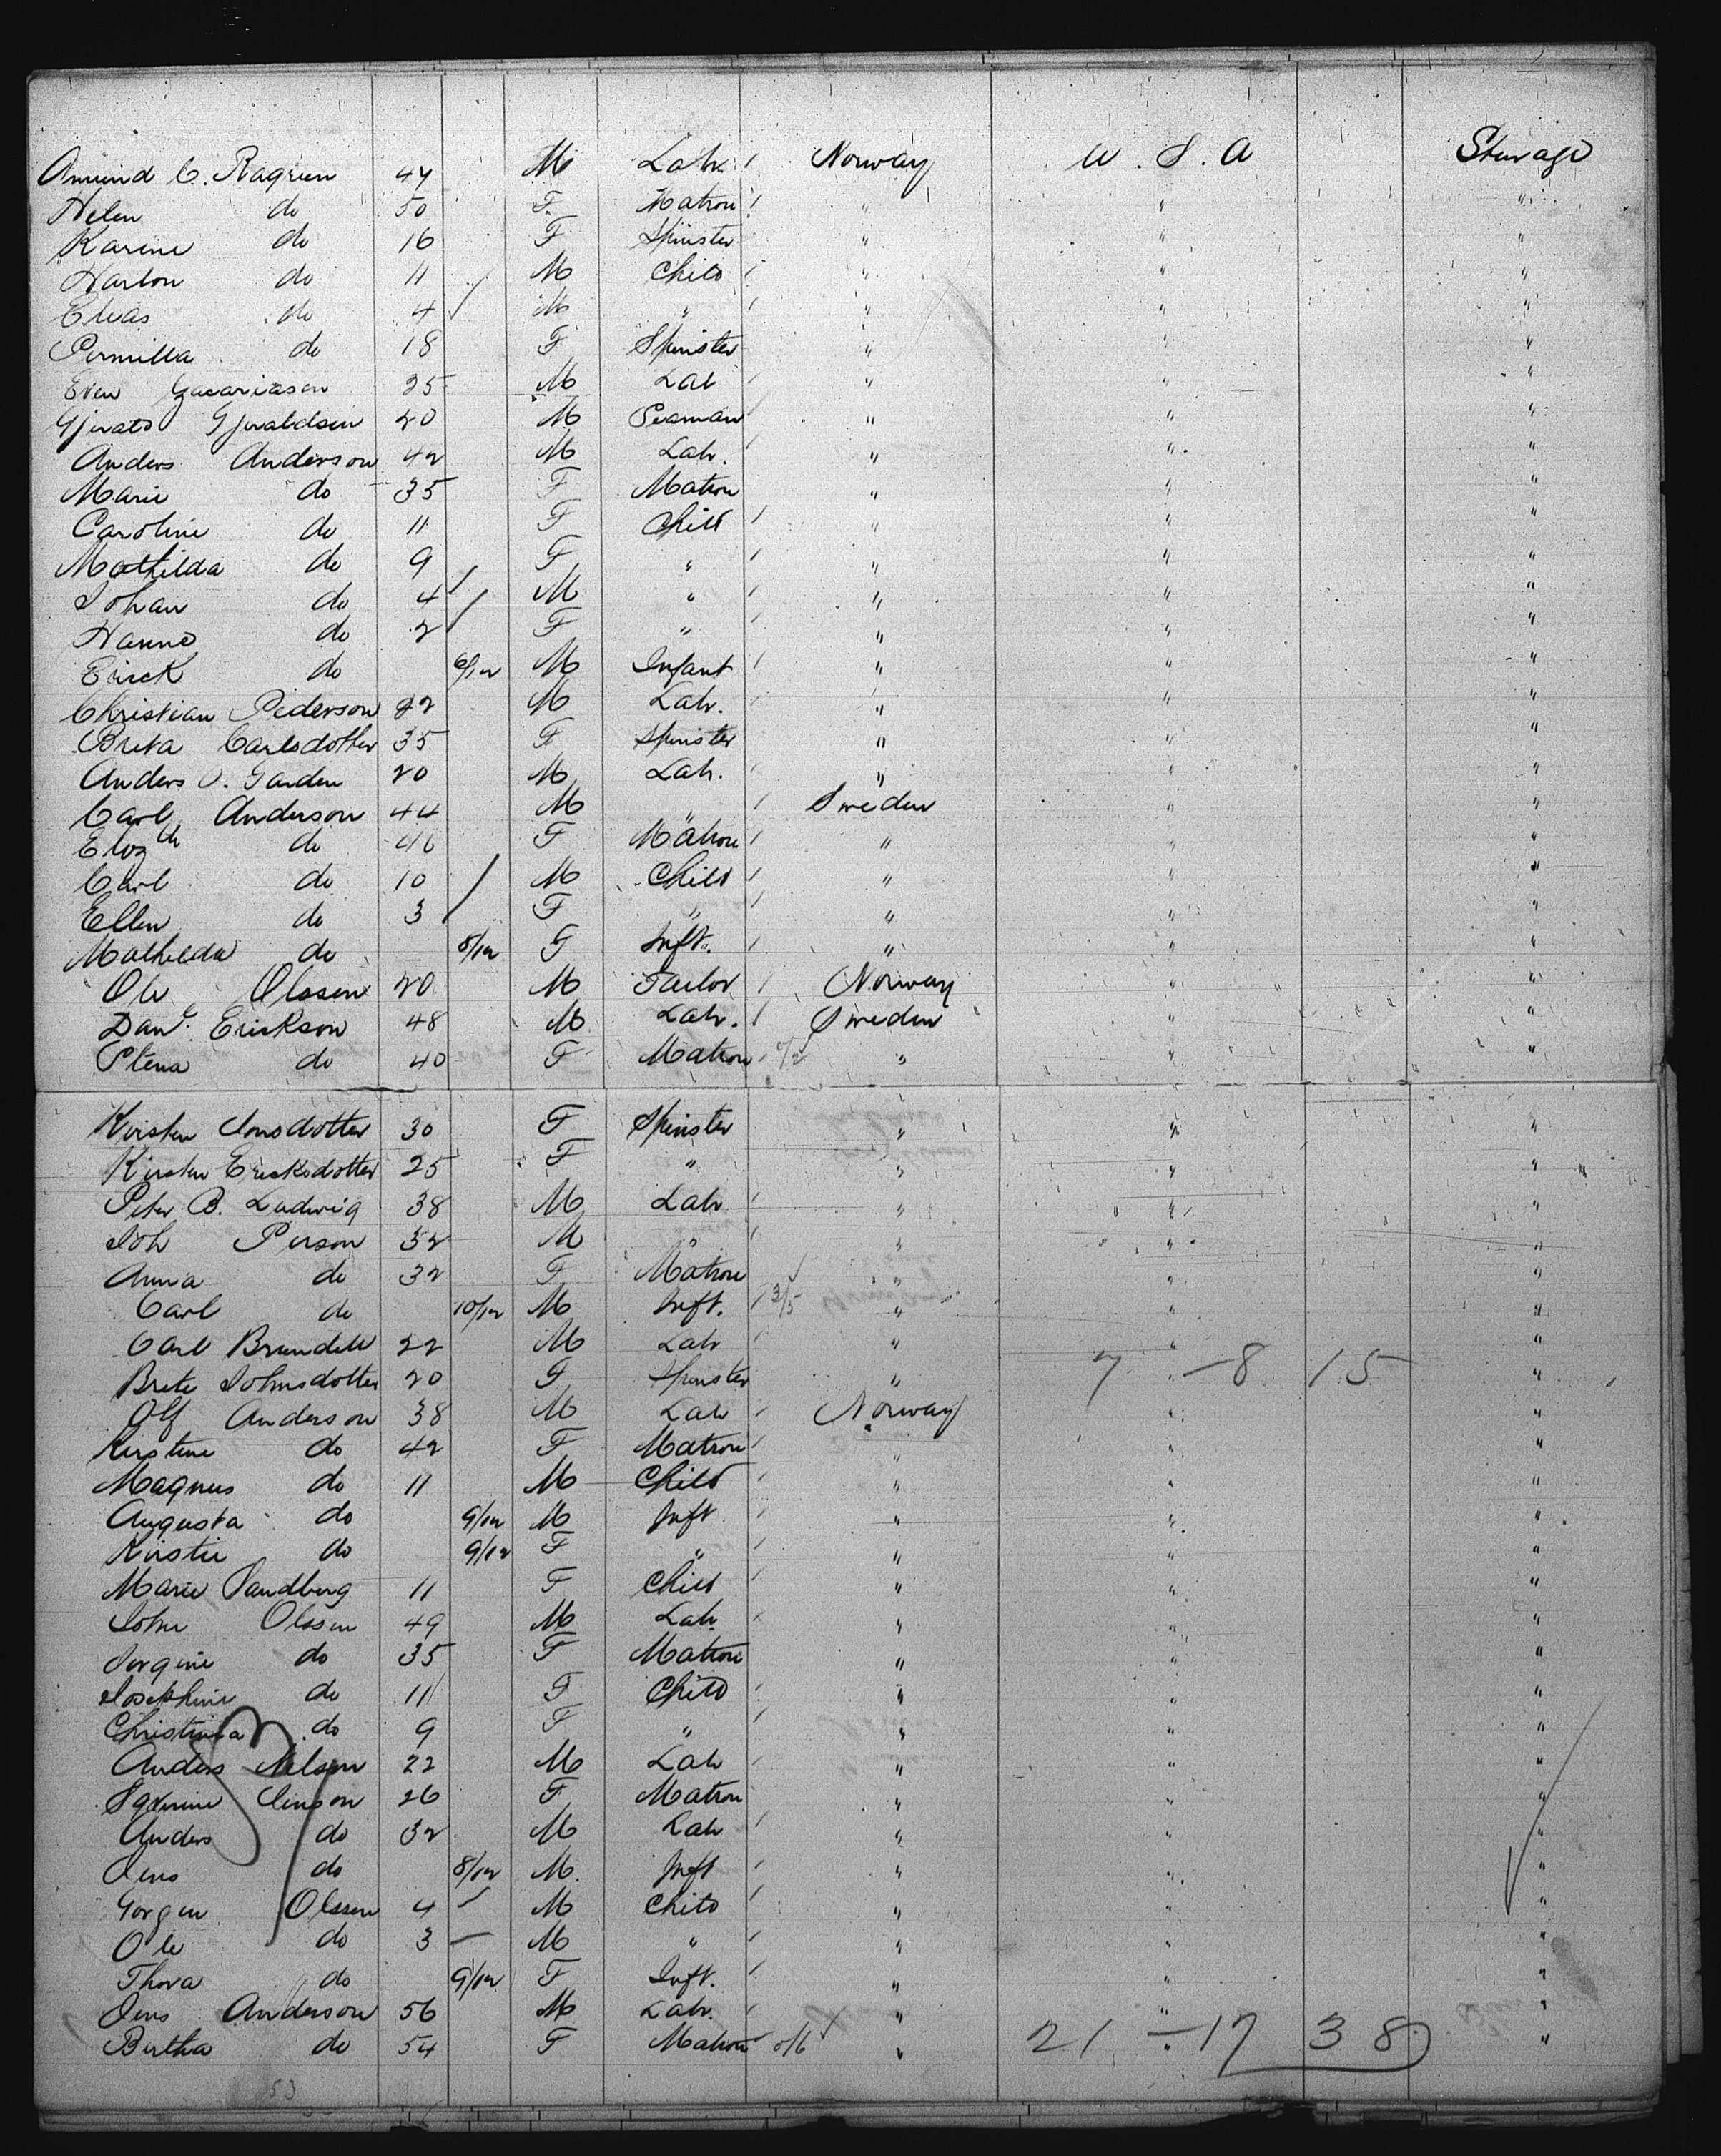 Amund C. Ragrien 44 M Labr. Norway U. S. A Steerage
Helen do 50 F Matron " " "
Karine do 16 F Spinster " " "
Harlon do 11 M Child " " "
Elias do 4 M " " " "
Pernilla do 18 F Spinster " " "
Even Zacariason 25 M Lab " " "
Gjerato Gjeraldsen 20 M Seaman " " "
Anders Anderson 42 M Labr. " " "
Marie do 35 F Matron " " "
Caroline do 11 F Child " " "
Mathilda do 9 F " " " "
Johan do 4 M " " " "
Hanne do 2 F " " " "
Erick do 6/12 M Infant " " "
Christian Pederson 22 M Labr. " " "
Brita Carlsdotter 35 F Spinster " " "
Anders O. Garden 20 M Labr. " " "
Carl Anderson 44 M " Sweden " "
Elizth do 46 F Matron " " "
Carl do 10 M Child " " "
Ellen do 3 F " " " "
Mathilda do 8/12 F Inft. " " "
Ole Olssen 20 M Tailor Norway " "
Danl. Erickson 48 M Labr. Sweden " "
Stena do 40 F Matron " " "
Kirsten Jonsdotter 30 F Spinster " " "
Kirsten Ericksdotter 25 F " " " "
Peter B. Ludwig 38 M Labr " " "
Joh Person 32 M " " " "
Anna do 32 F Matron " " "
Carl do 10/12 M Inft. 3/5 " " "
Carl Brundell 22 M Labr " " "
Brite Johnsdotter 20 F Spinster " 7 - 8 15 "
Olf Anderson 38 M Labr Norway " "
Kerstine do 42 F Matron " " "
Magnus do 11 M Child " " "
Augusta do 9/12 M Inft " " "
Kirstie do 9/12 F " " " "
Marie Sandberg 11 F Child " " "
John Olssen 49 M Labr " " "
Jorgine do 35 F Matron " " "
Josephine do 11 F Child " " "
Christina do 9 F " " " "
Anders Nelson 22 M Labr " " "
Severine Jenson 26 F Matron " " "
Anders do 32 M Labr " " "
Jens do 8/12 M. Inft " " "
Gorgen Olssen 4 M Child " " "
Ole do 3 M " " " "
Thora do 9/12 F Inft. " " "
Jens Anderson 56 M Labr. " " "
Bertha do 54 F Matron " 21 - 17 38 "
53